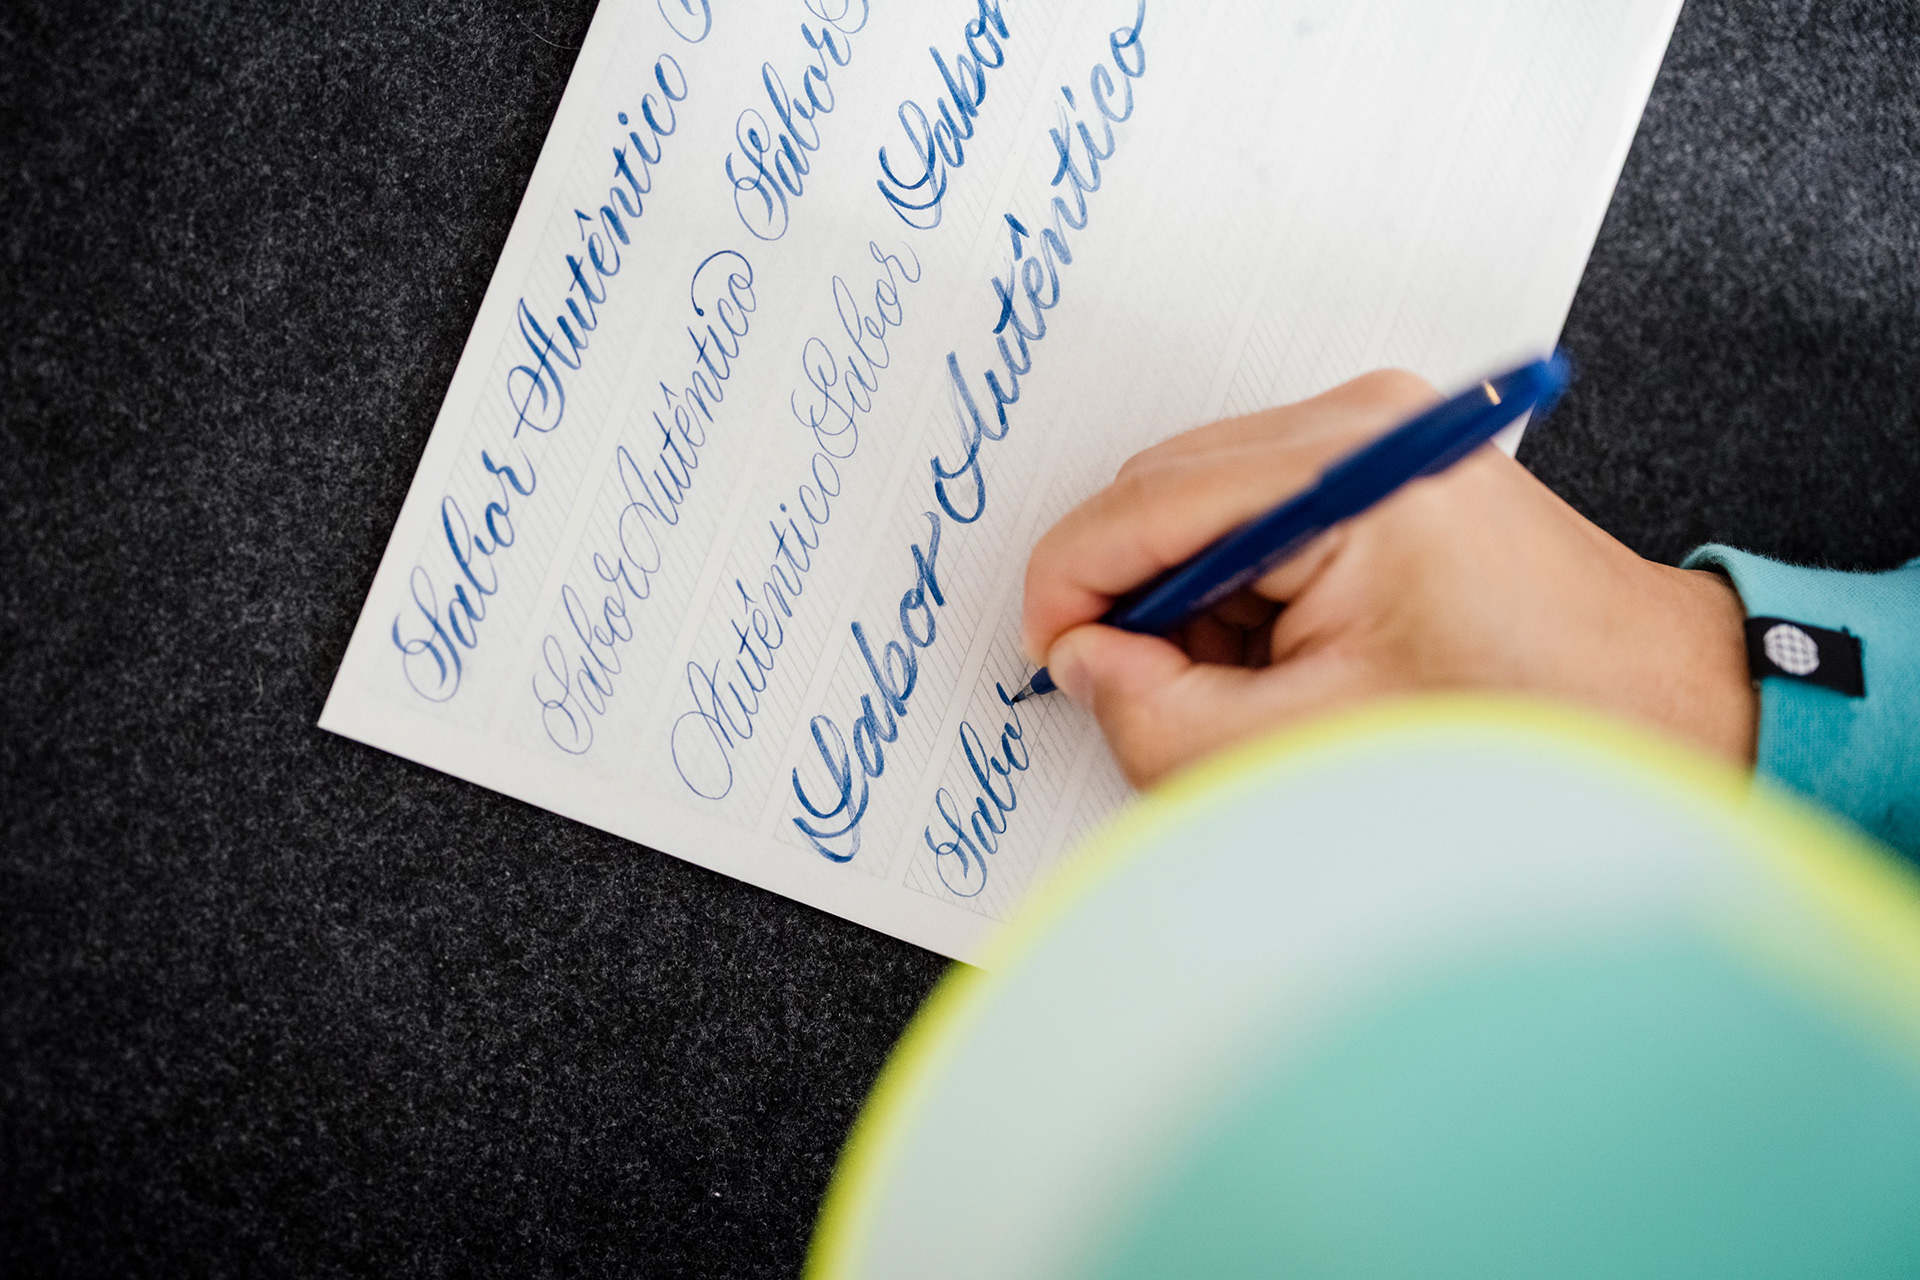 Sabor Autêntico
Sabor Autêntico Sabor
Autêntico Sabor Sabor
Sabor Autêntico
Sabor